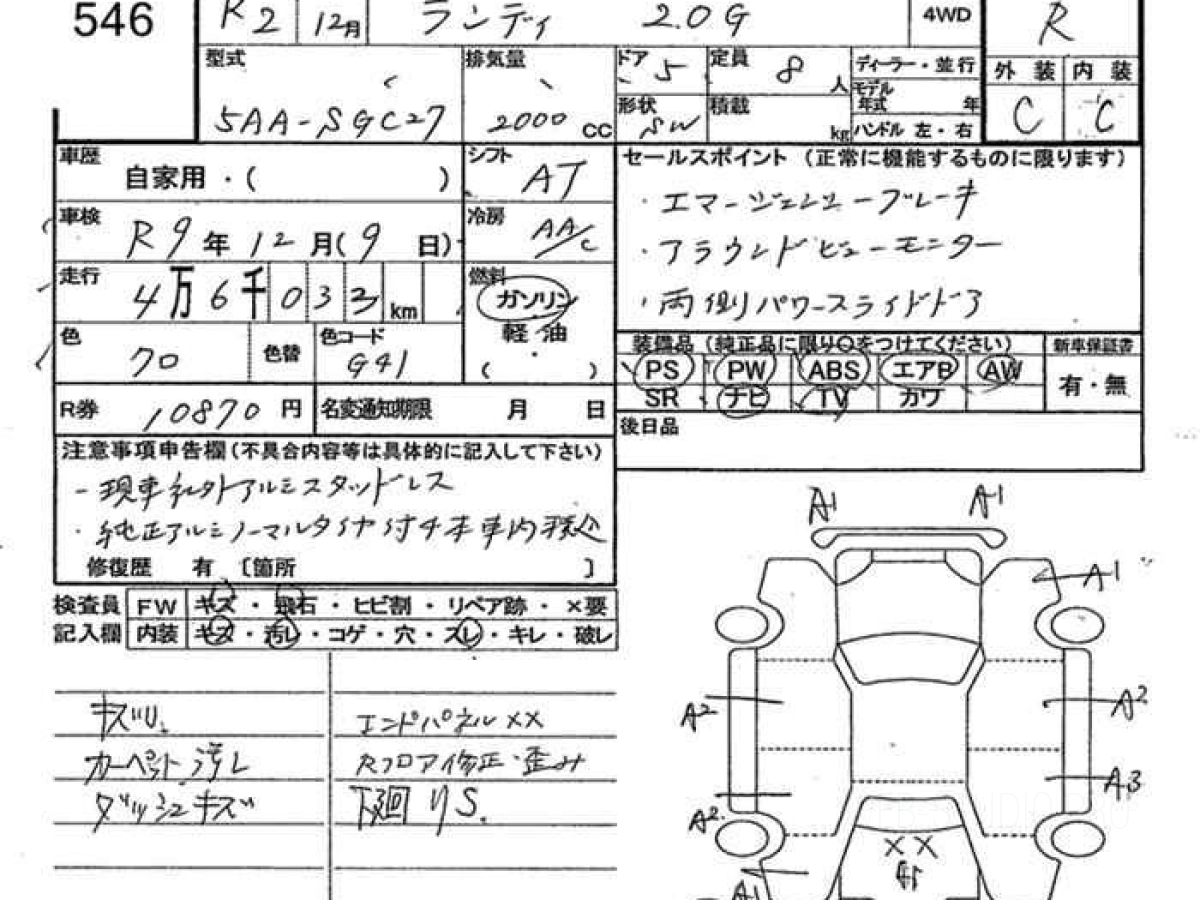 546
R2 12月 ランディ 2.0G 4WD R
型式 排気量 ドア 5 定員 8人 ディーラー・並行 外装 内装
5AA-SGC27 2000 CC 形状 SW 積載 kg モデル年式 年 C C
ハンドル 左・右
車歴 自家用・( ) シフト AT
セールスポイント (正常に機能するものに限ります)
・エマージェンシーブレーキ
・アラウンドビューモニター
・両側パワースライドドア
車検 R9年12月(9日) 冷房 AA/C
走行 4万6千032km 燃料 ガソリン
軽・油
( )
色 70 色替 色コード G41
装備品 (純正品に限り○をつけてください) 新車保証書
PS PW ABS エアB AW 有・無
SR ナビ TV カワ
R券 10870円 名変通知期限 月 日
後日品
注意事項申告欄(不具合内容等は具体的に記入して下さい)
-現車社外アルミスタッドレス
・純正アルミノーマルタイヤ付4本車内積込
修復歴 有 〔箇所 〕
検査員 FW キズ・飛石・ヒビ割・リペア跡・×要
記入欄 内装 キズ・汚レ・コゲ・穴・スレ・キレ・破レ
キズU. エンドパネルXX
カーペット汚レ Rフロア修正・歪み
ダッシュキズ 下廻りS.
A1 A1
A1
A2 A2
A3
A2
XX
A1